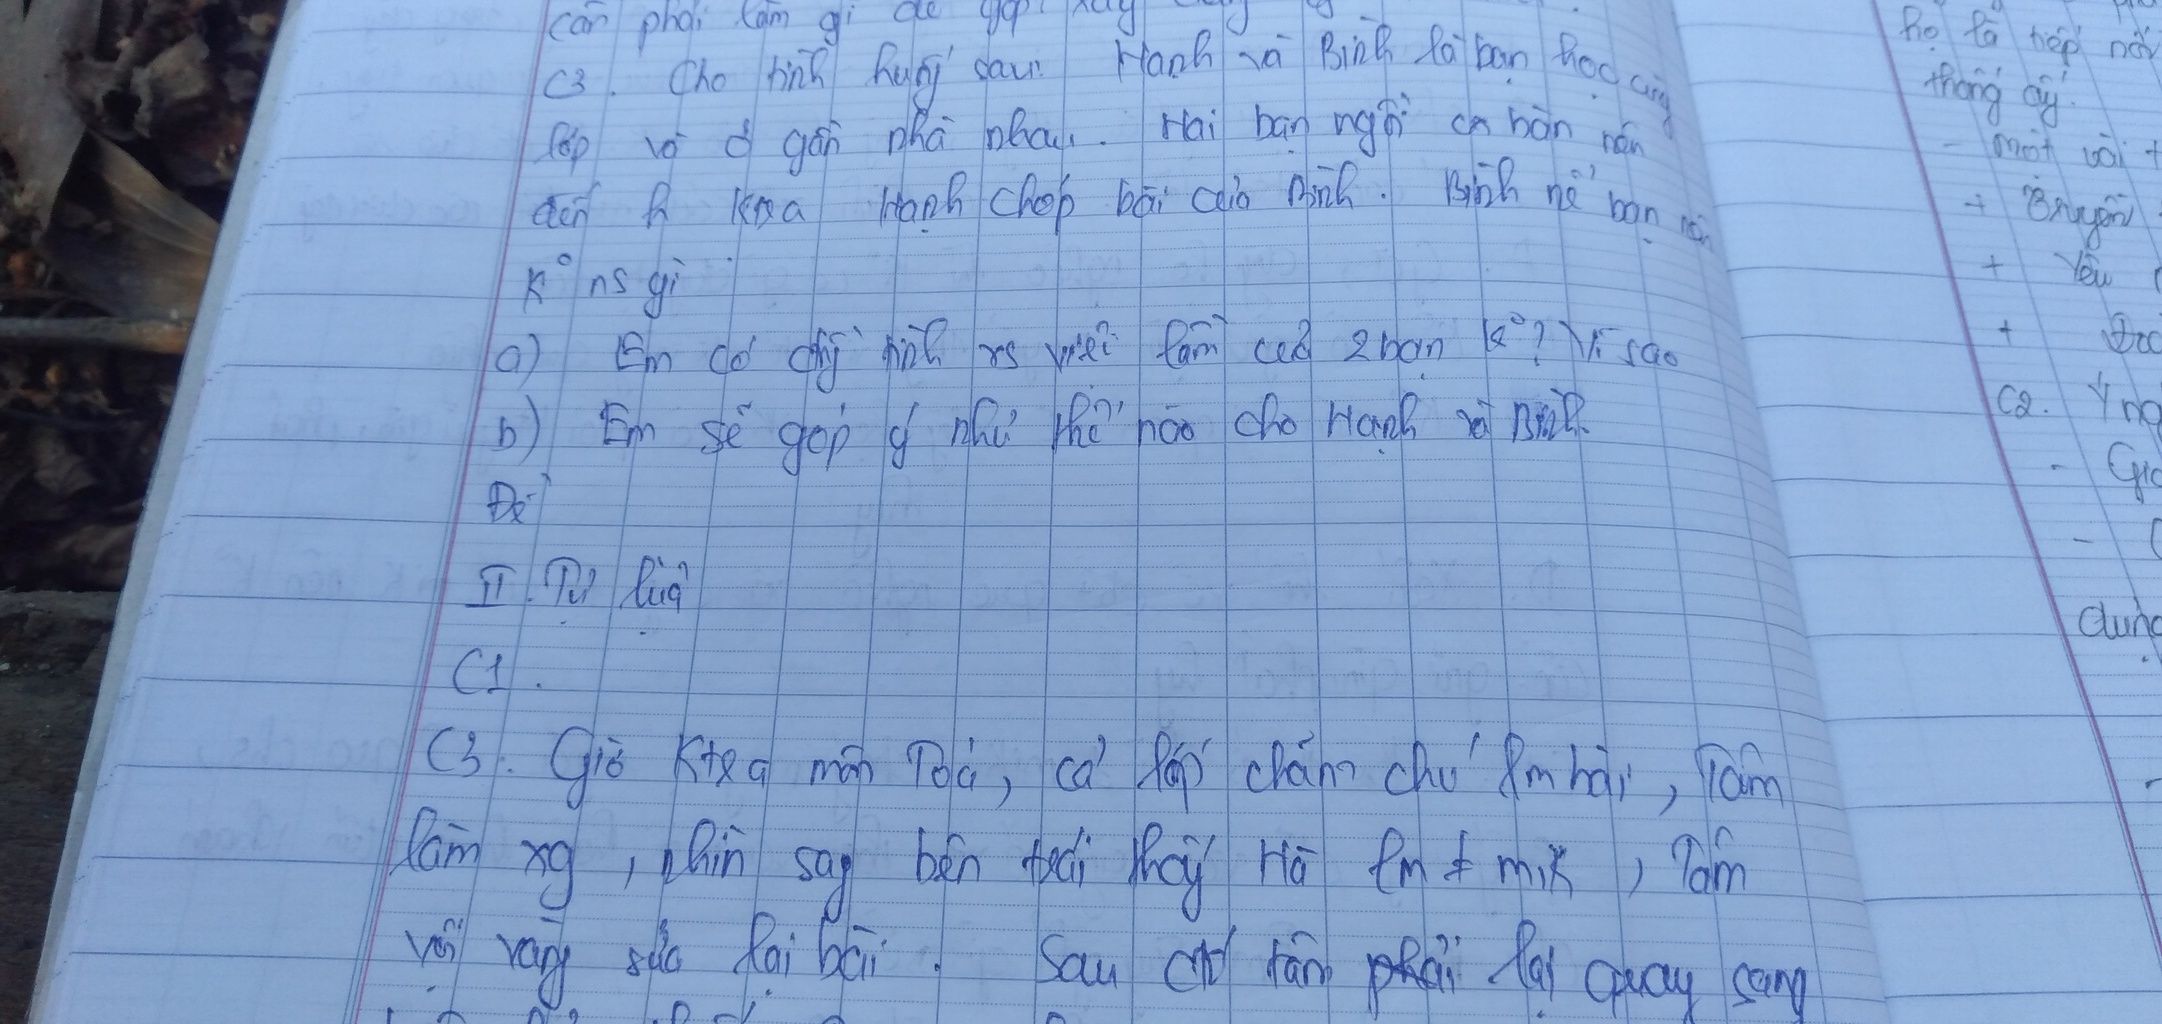 cần phải làm gì để góp
C3. Cho tình huống sau: Hạnh và Bình là bạn học cùng
lớp và ở gần nhà nhau. Hai bạn ngồi cn bàn nên
đến h Ktra Hạnh chép bài của Bình. Bình nể bạn nên
K° ns gì
a) Em có đồng tình vs việc làm của 2 bạn k°? Vì sao
b) Em sẽ góp ý như thế nào cho Hạnh và Bình.
Đề
II. Tự luận
C1.
C3. Giờ Ktra môn Toán, cả lớp chăm chú làm bài, Tâm
làm xg, nhìn sag bên trái thấy Hà làm ≠ mik, Tâm
vội vàng sửa lại bài. Sau đó tâm phải lại quay sang
họ là tiếp nối
thống ấy.
- một vài
+
+ Yêu
+
C2. Ý
-
-